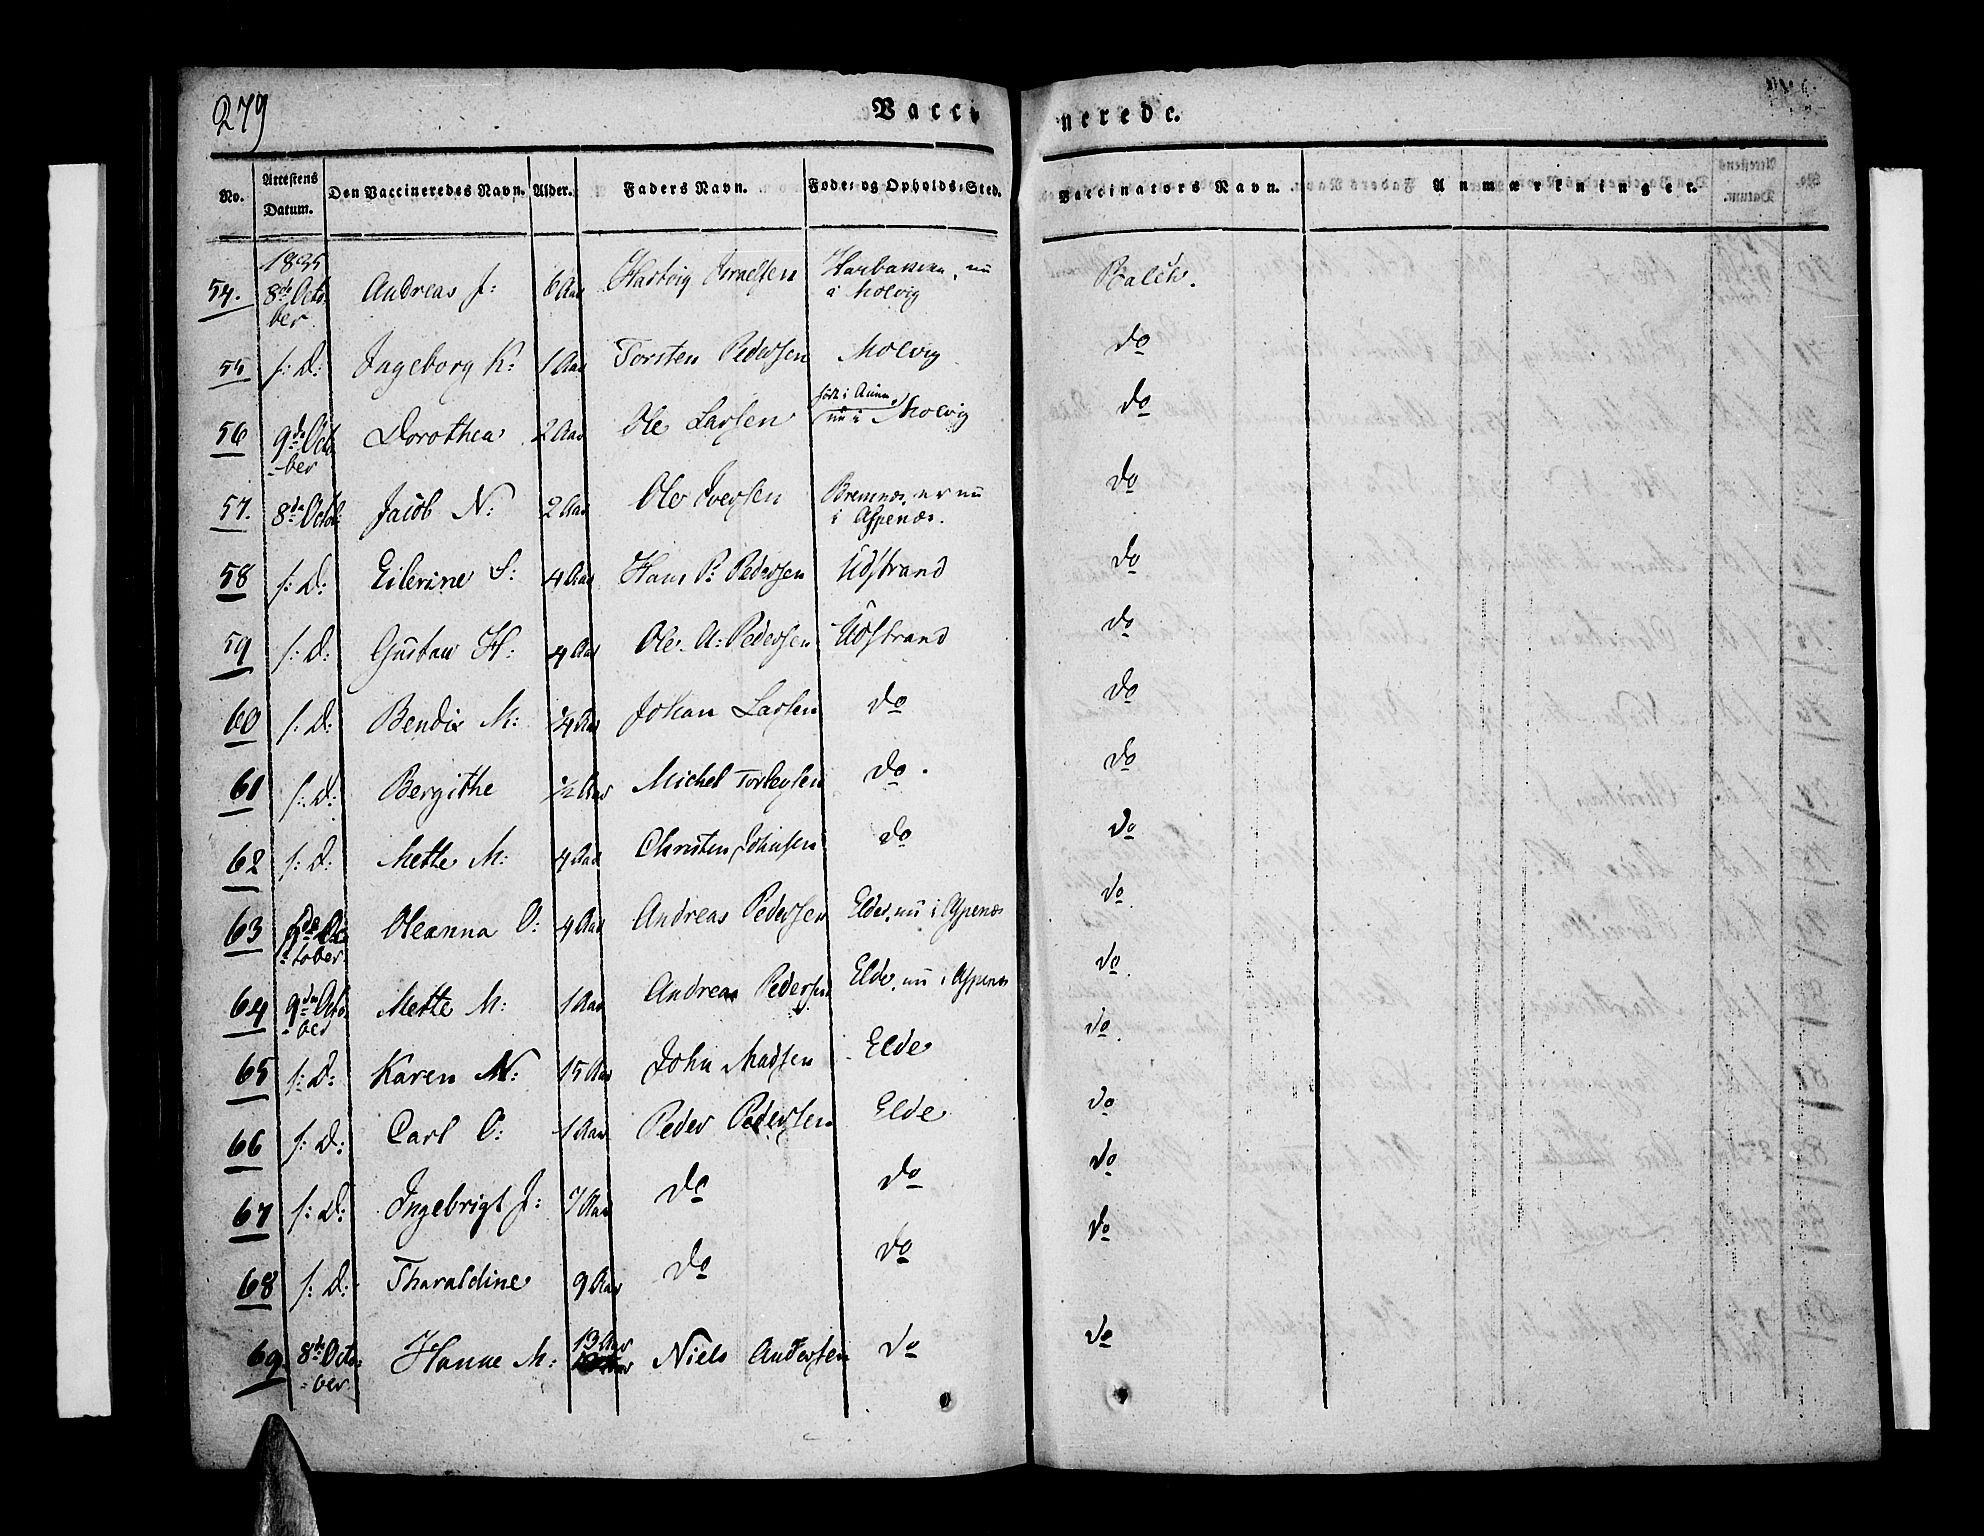 279
Vacci nerede.
No. Attestens Datum. Den Vaccineredes Navn. Alder. Faders Navn. Føde- og Opholds-Sted. Vaccinators Navn. Anmærkninger.
1835
54. 8de Octo- Andreas J: 6 Aar Hartvig Isralsen
ber i Molvig Balch.
55 s: D: Ingeborg K: 1 Aar Torsten Pedersen Molvig do
56 9de Octo- Dorothea 2 Aar Ole Larsen nu i Molvig do
-ber
57. 8de Octob: Jacob N: 2 Aar Ole Iversen Bremnes, er nu
i Aspenæs. do
58 s: D: Eilerine S: 4 Aar Hans P: Pedersen Udstrand do
59 s: D: Gustav H: 4 Aar Ole A: Pedersen Udstrand do
60 s: D: Bendix M: 1/4 Aar Johan Larsen do do
61 s: D: Bergithe 1/2 Aar Michel Torleysen do. do
62 s: D: Mette M: 4 Aar Christen Johnsen do do
63 Oc- Oleanna O: 4 Aar Andreas Pedersen Elde, nu i Aspenæs do.
-tober
64 9de Octo- Mette M: 1 Aar Andreas Pedersen Elde, nu i Aspenæs do.
-ber
65 s: D: Karen M: 15 Aar John Madsen Elde do
66 s: D: Carl O: 1 Aar Peder Pedersen Elde do
67 s: D: Ingebrigt J: 7 Aar do do do
68 s: D: Tharaldine 9 Aar do do do
69. 8de Octo- Hanne M: 13 Aar Niels Andersen do do
-ber